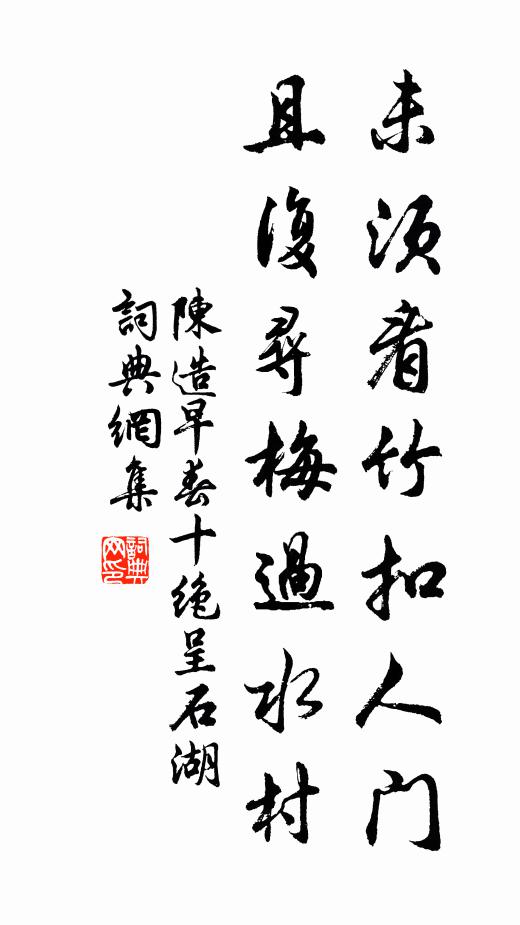 未須看竹扣人門
且復尋梅過水村
陳造早春十絶呈石湖
詞典網集
詞典
网印